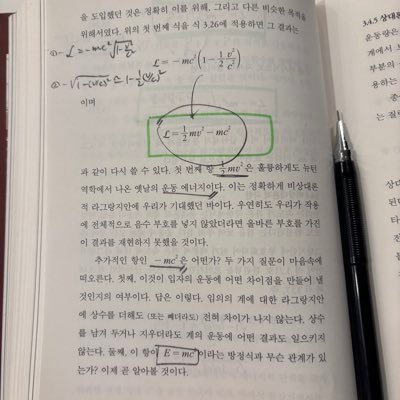 을 도입했던 것은 정확히 이를 위해, 그리고 다른 비슷한 목적을
위해서였다. 위의 첫 번째 식을 식 3.26에 적용하면 그 결과는
①- ℒ = -mc²√(1-v²/c²)
ℒ = -mc²(1 - 1/2 v²/c²)
②- √(1-(v/c)²) ≃ 1-½(v/c)²
이며
ℒ = 1/2 mv² - mc²
과 같이 다시 쓸 수 있다. 첫 번째 항 1/2 mv²은 훌륭하게도 뉴턴
역학에서 나온 옛날의 운동 에너지이다. 이는 정확하게 비상대론
적 라그랑지안에 우리가 기대했던 바이다. 우연히도 우리가 작용
에 전체적으로 음수 부호를 넣지 않았더라면 올바른 부호를 가진
이 결과를 재현하지 못했을 것이다.
추가적인 항인 -mc²은 어떤가? 두 가지 질문이 마음속에
떠오른다. 첫째, 이것이 입자의 운동에 어떤 차이점을 만들어 낼
것인지의 여부이다. 답은 이렇다. 임의의 계에 대한 라그랑지안
에 상수를 더해도 (또는 빼더라도) 전혀 차이가 나지 않는다. 상수
를 남겨 두거나 지우더라도 계의 운동에 어떤 결과도 일으키지
않는다. 둘째, 이 항이 E = mc²이라는 방정식과 무슨 관계가 있
는가? 이제 곧 알아볼 것이다.
3.4.5 상대론
운동량은
계에서 보
부분의
용하는